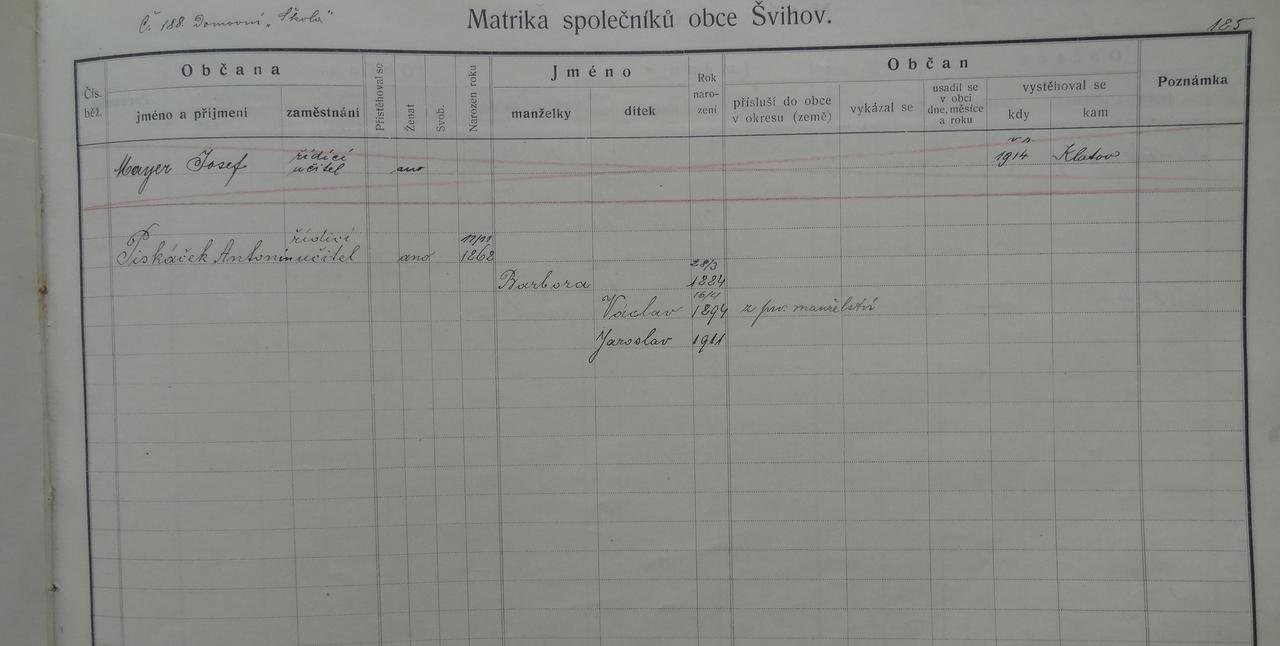 Č. 188. Domovní „Škola"
Matrika společníků obce Švihov.
185
Čís. běž.
Občana
jméno a příjmení
zaměstnání
Přistěhoval se
Ženat
Svob.
Narozen roku
Jméno
manželky
dítek
Rok naro- zení
Občan
přísluší do obce v okresu (země)
vykázal se
usadil se v obci dne, měsíce a roku
vystěhoval se
kdy
kam
Poznámka
Mayer Josef řídící učitel ano 1914 Klatov
Piskáček Antonín řídicí učitel ano 1862
Barbora 28/3 1884
Václav 16/4 1894 z prv. manželství
Jaroslav 1911